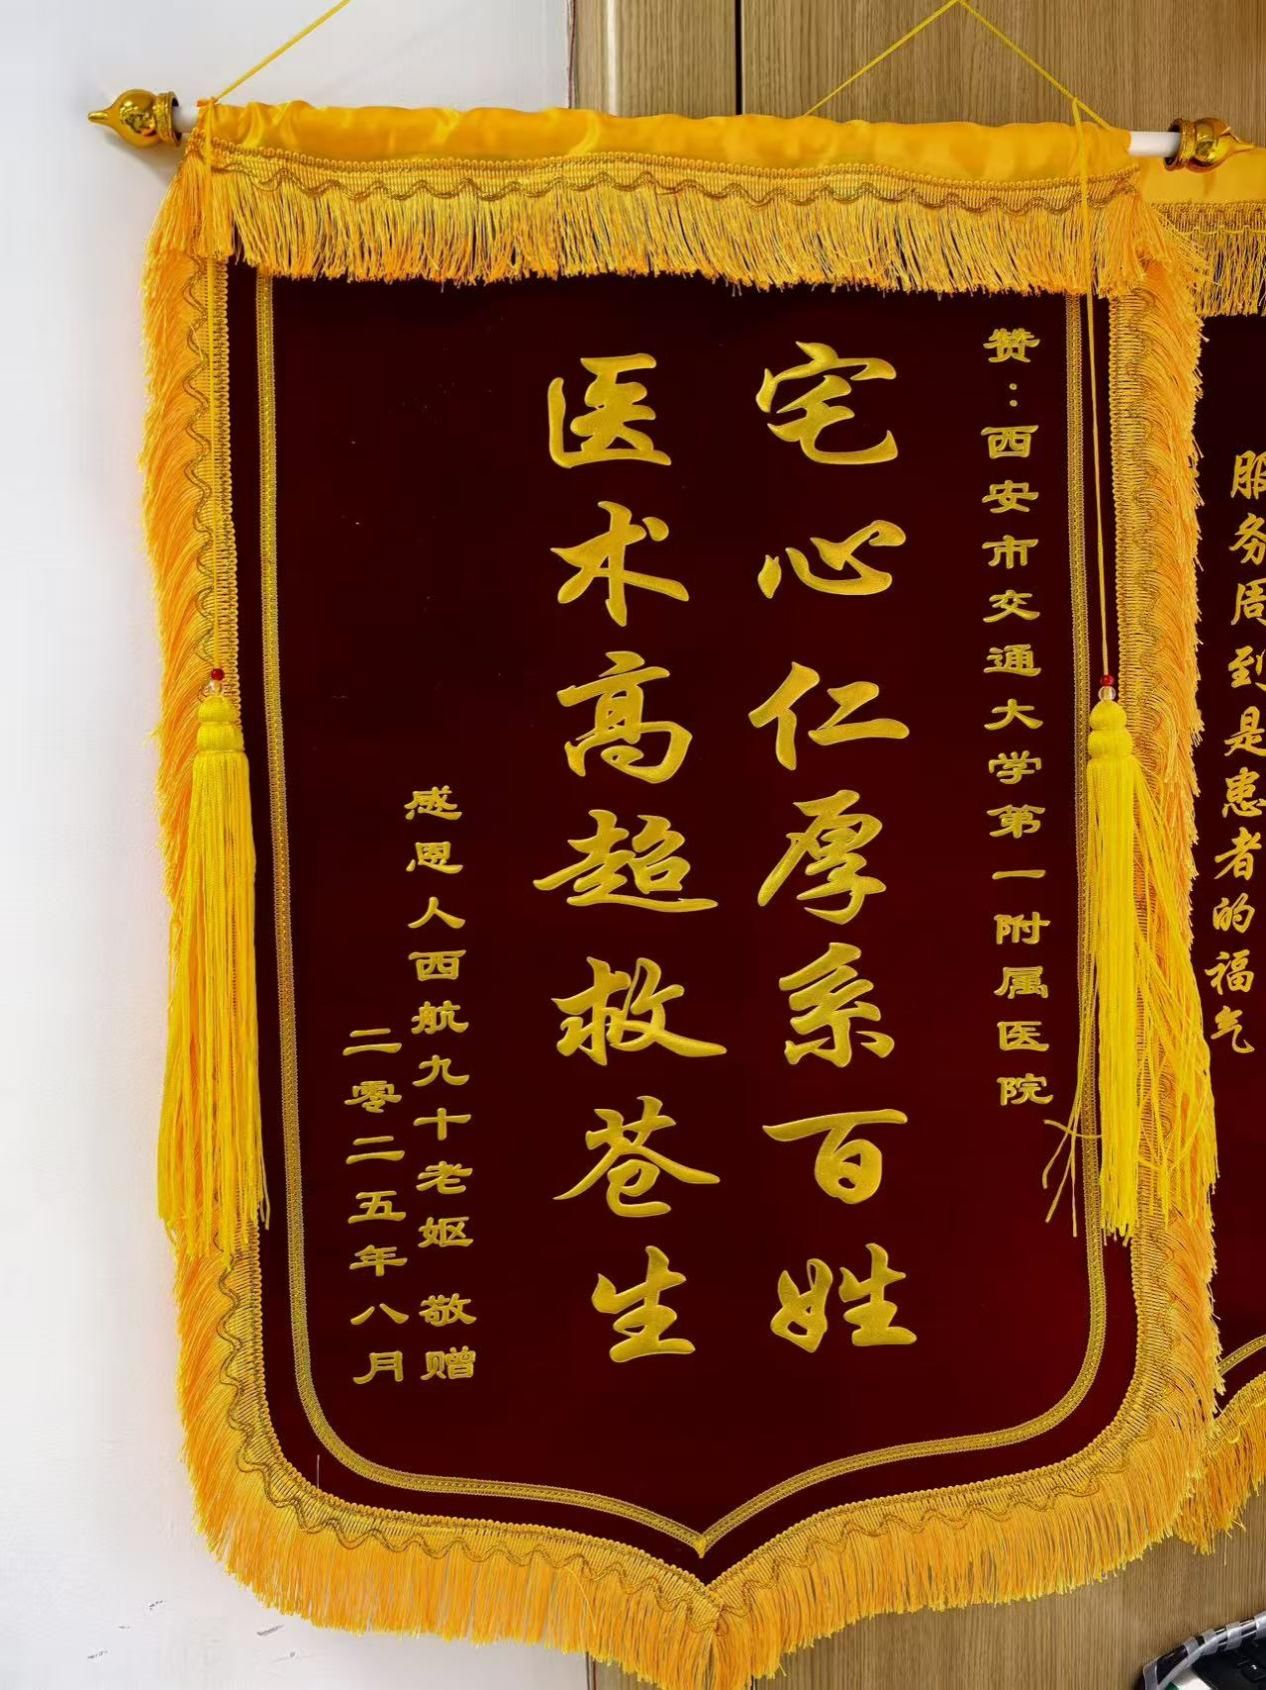 赞：西安市交通大学第一附属医院
宅心仁厚系百姓
医术高超救苍生
感恩人西航九十老妪 敬赠
二零二五年八月
服务周到是患者的福气